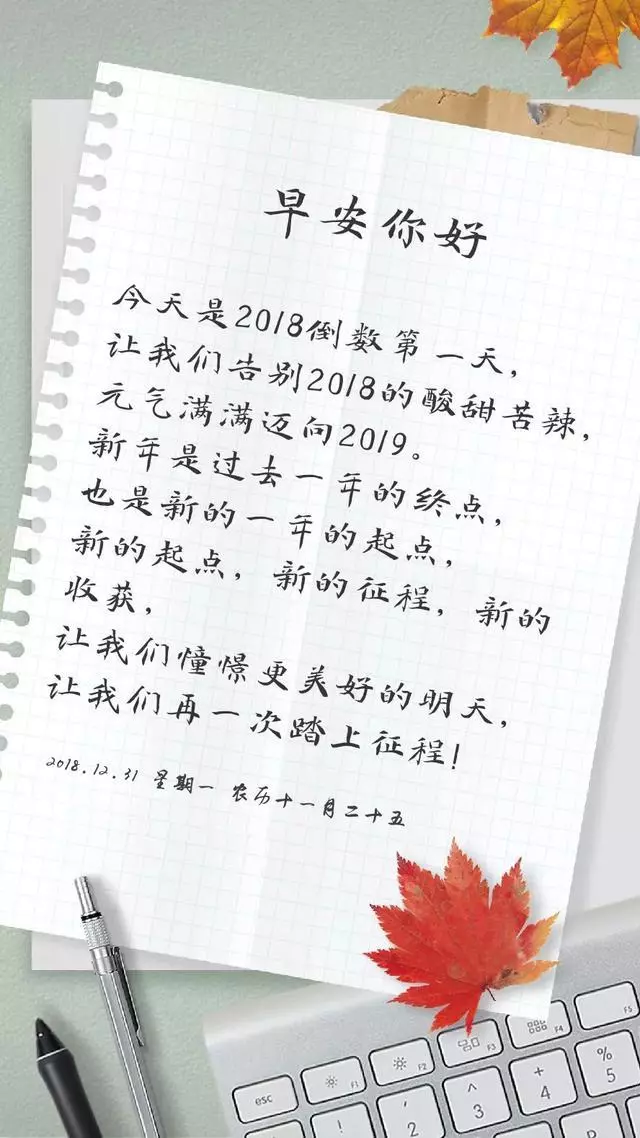 早安你好
今天是2018倒数第一天，
让我们告别2018的酸甜苦辣，
元气满满迈向2019。
新年是过去一年的终点，
也是新的一年的起点，
新的起点，新的征程，新的
收获，
让我们憧憬更美好的明天，
让我们再一次踏上征程！
2018.12.31 星期一 农历十一月二十五
esc
F1
F2
F3
F4
!
@
2
^
3
+
4
%
5